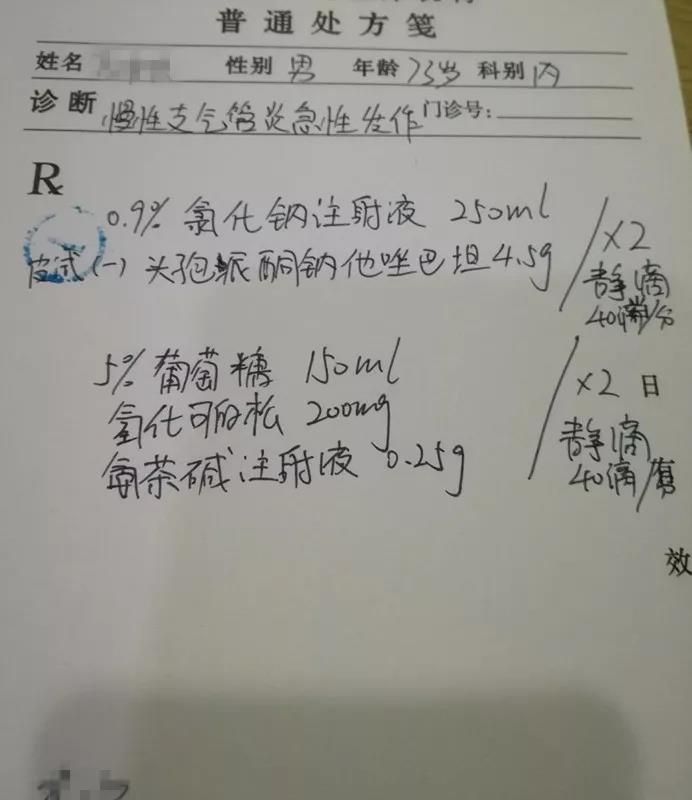 普通处方笺
姓名 性别 男 年龄 73岁 科别 内
诊断 慢性支气管炎急性发作 门诊号:
R
0.9% 氯化钠注射液 250ml /×2
皮试(一) 头孢哌酮钠他唑巴坦 4.5g 静滴
40滴/分
5% 葡萄糖 150ml ×2 日
氢化可的松 200mg 静滴
氨茶碱注射液 0.25g 40滴/
效